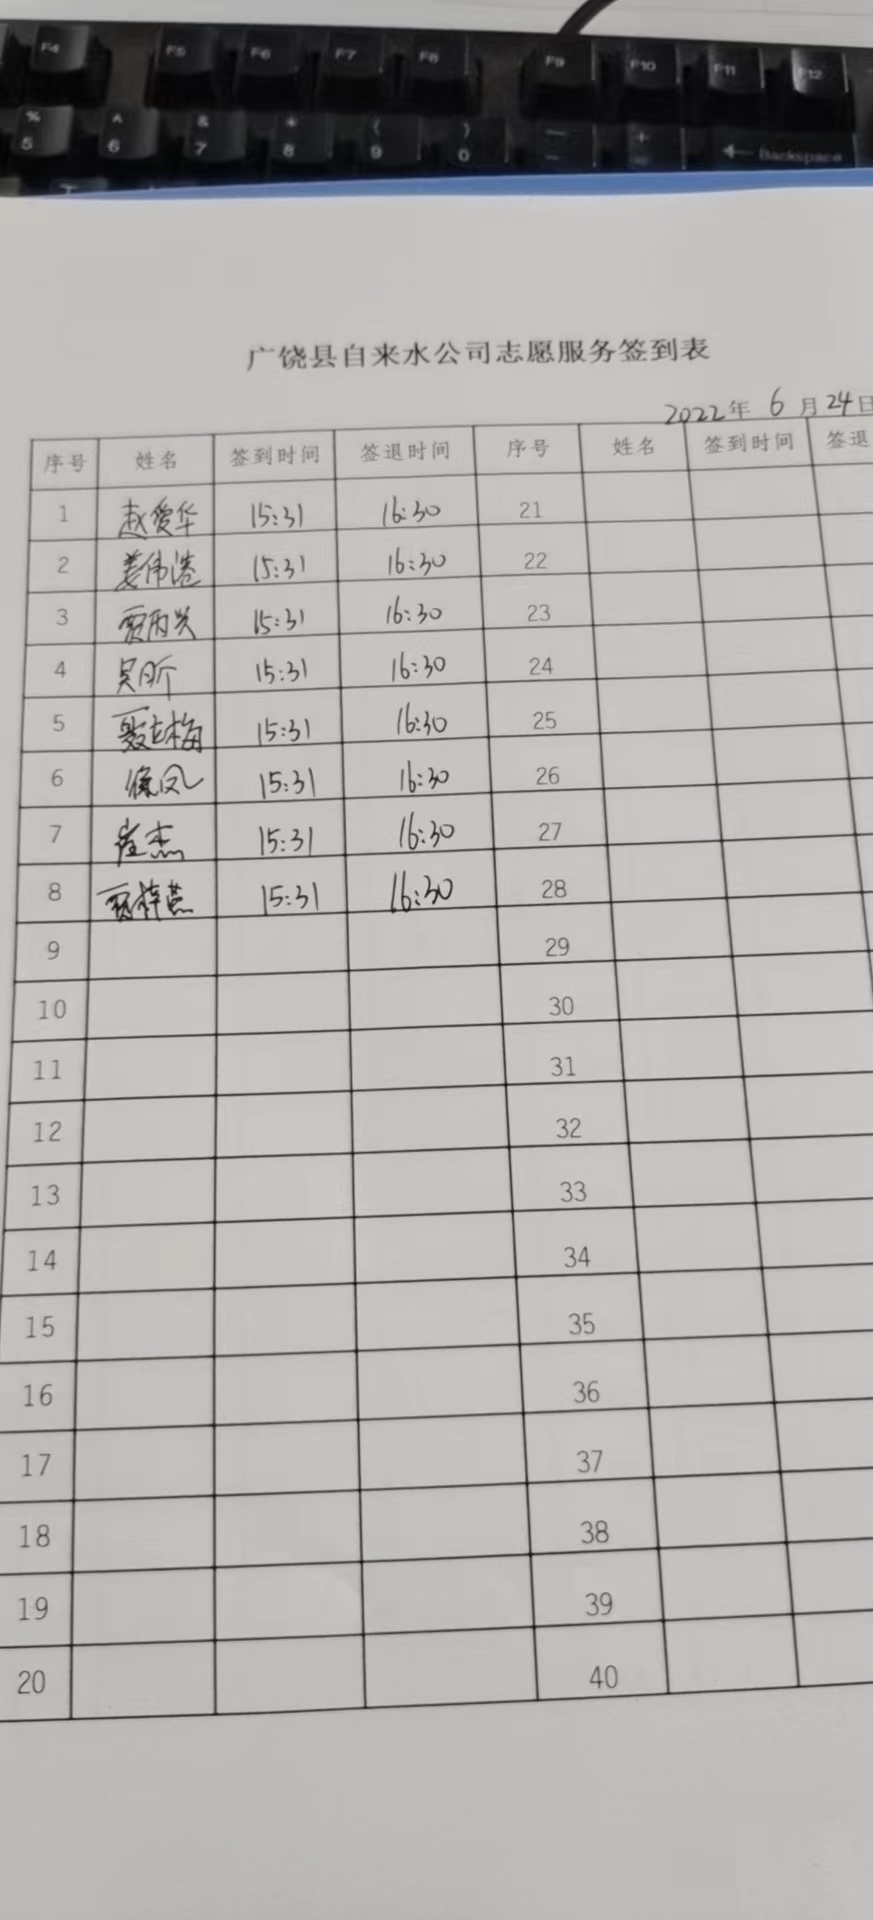 F4 F5 F6 F7 F8 F9 F10 F11 F12
% ^ & * ( ) — +
5 6 7 8 9 0 - = Backspace
T
广饶县自来水公司志愿服务签到表
2022年 6月 24日
序号 姓名 签到时间 签退时间 序号 姓名 签到时间 签退
1 赵爱华 15:31 16:30 21
2 姜伟港 15:31 16:30 22
3 贾丙兴 15:31 16:30 23
4 吴昕 15:31 16:30 24
5 聂立梅 15:31 16:30 25
6 侯凤 15:31 16:30 26
7 崔杰 15:31 16:30 27
8 贾梓燕 15:31 16:30 28
9 29
10 30
11 31
12 32
13 33
14 34
15 35
16 36
17 37
18 38
19 39
20 40